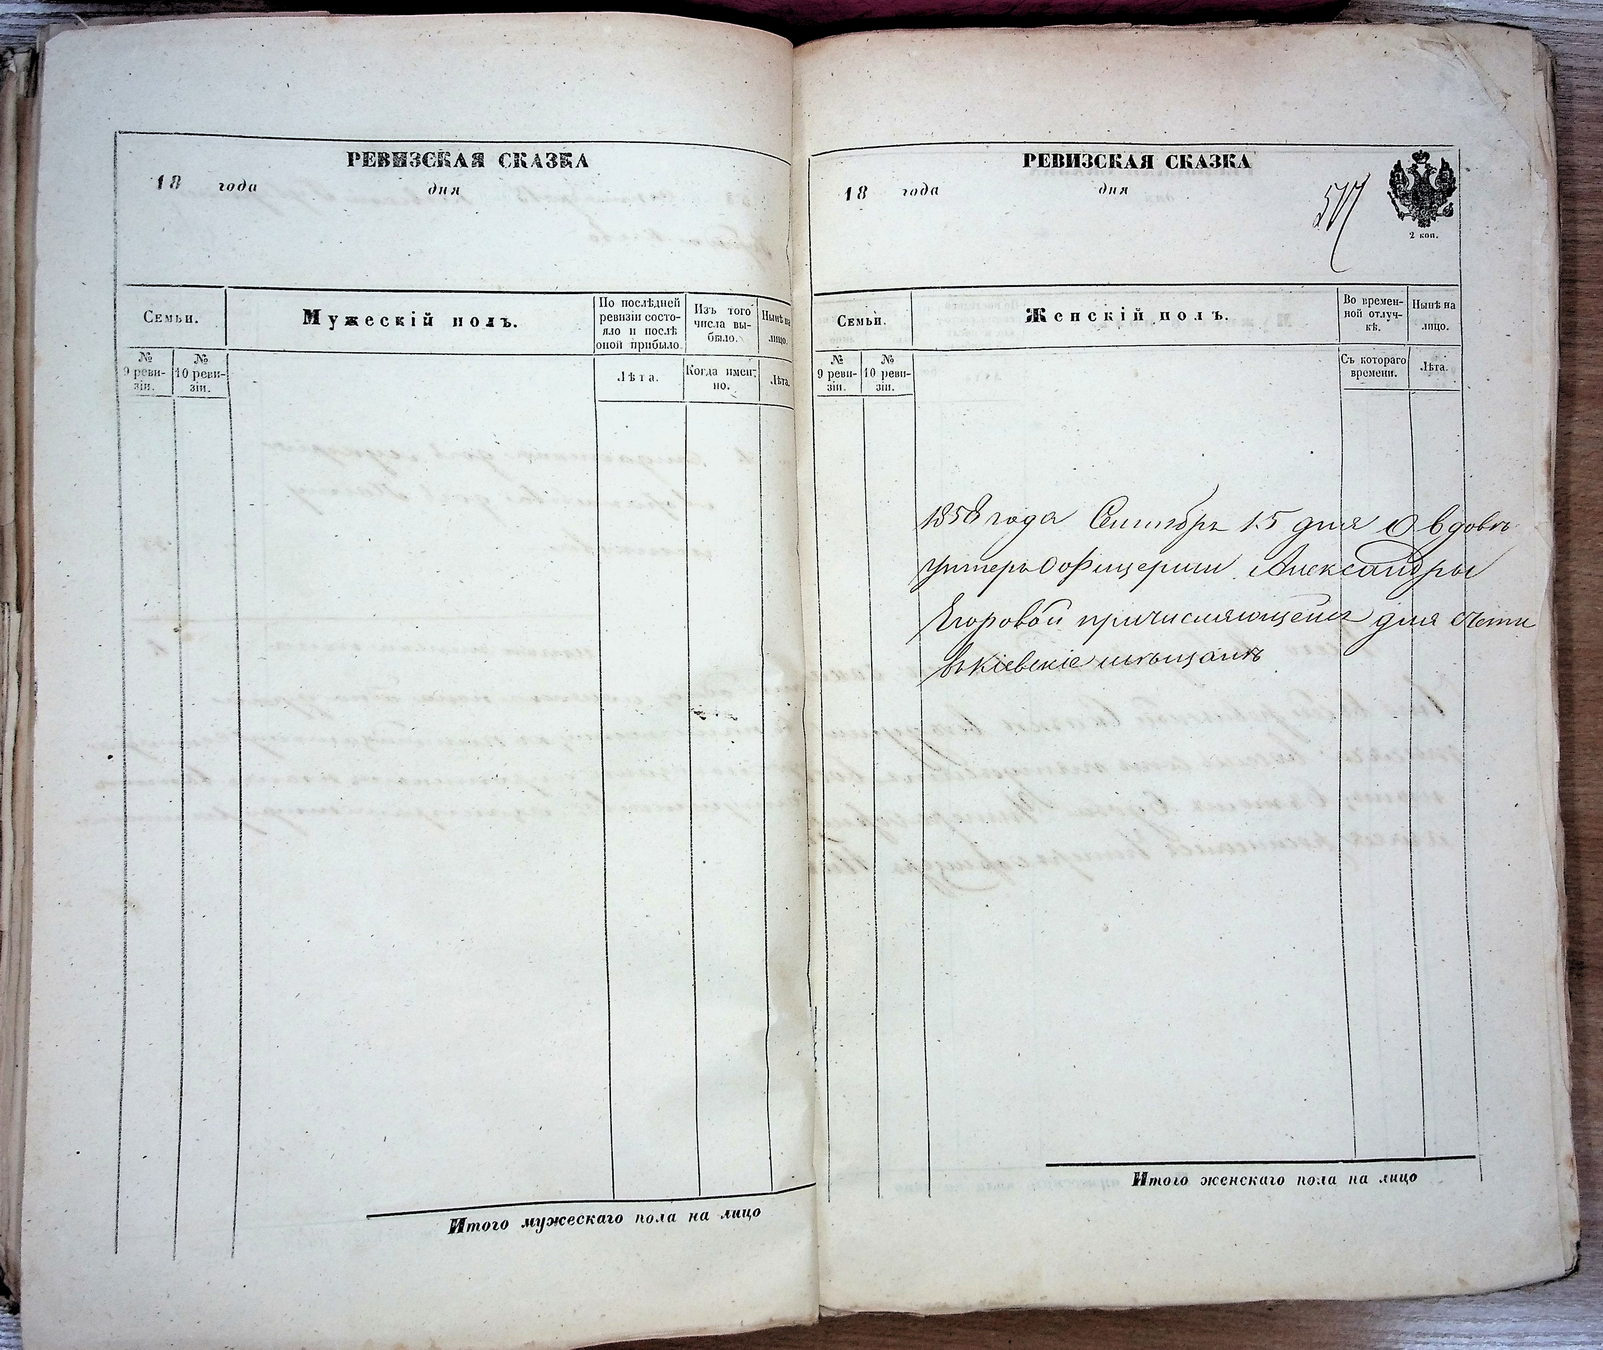 РЕВИЗСКАЯ СКАЗКА
18 года дня
Семьи.
Мужескій полъ.
По послѣдней
ревизіи состо-
яло и послѣ
оной прибыло.
Изъ того
числа вы-
было.
Нынѣ на
лицо.
№
9 реви-
зіи.
№
10 реви-
зіи.
Лѣта.
Когда имен-
но.
Лѣта.
Итого мужескаго пола на лицо
РЕВИЗСКАЯ СКАЗКА
18 года дня
517
2 коп.
Семьи.
Женскій полъ.
Во времен-
ной отлуч-
кѣ.
Нынѣ на
лицо.
№
9 реви-
зіи.
№
10 реви-
зіи.
Съ котораго
времени.
Лѣта.
1858 года Сентябрь 15 дня О вдовѣ
унтеръ Офицерши Александры
Егоровой причисляющейся для счета
въ кіевскіе мѣщане
Итого женскаго пола на лицо